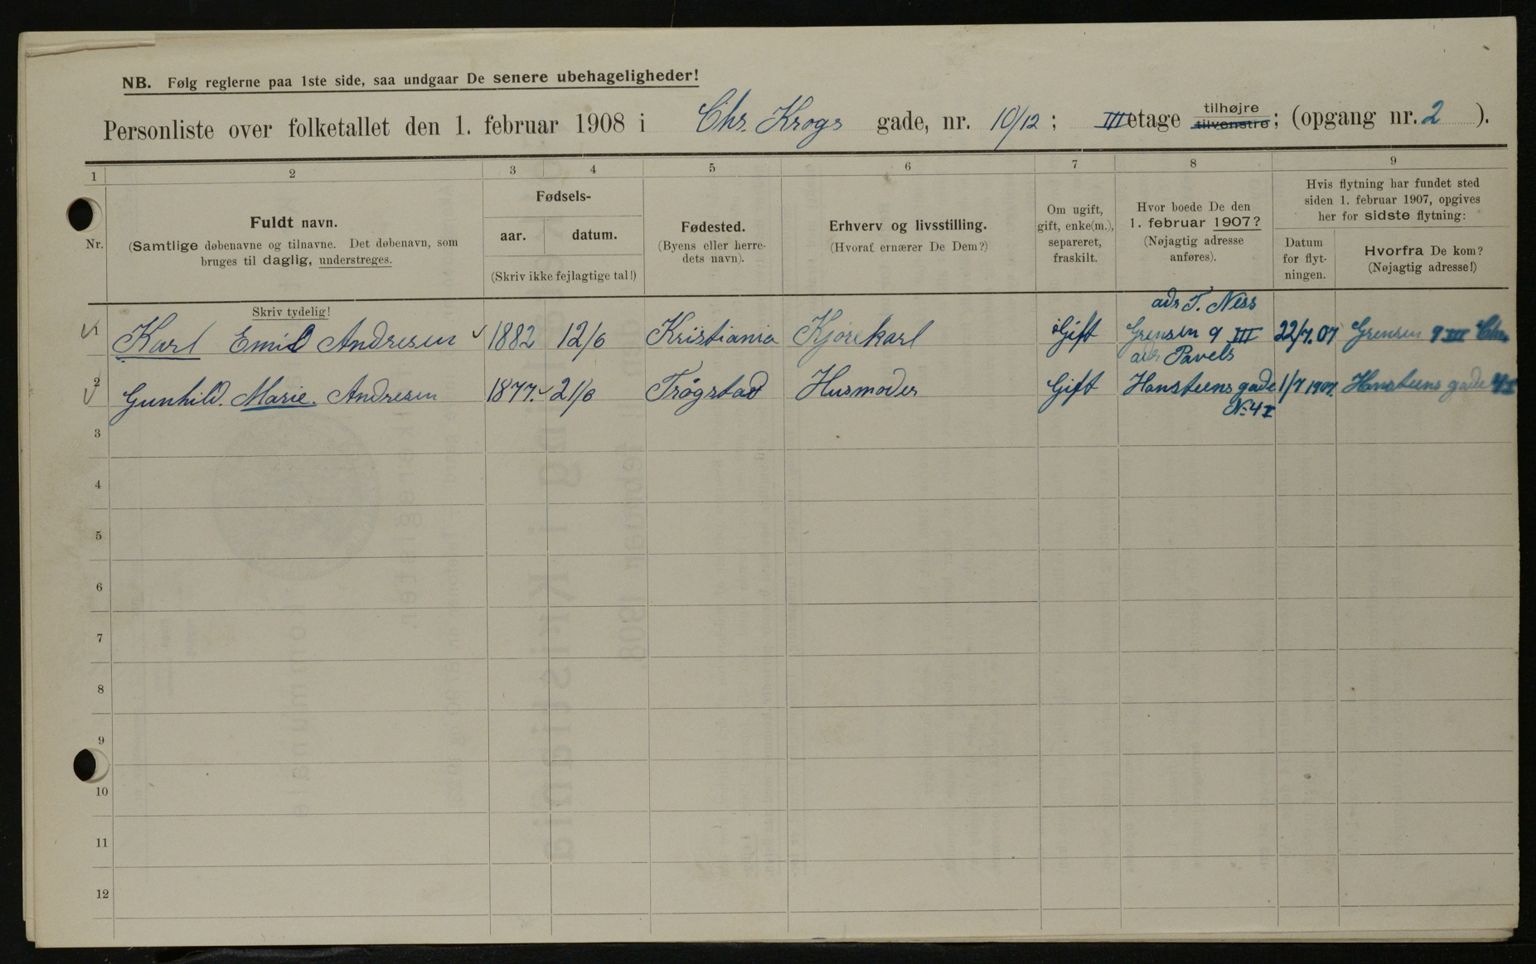 NB. Følg reglerne paa 1ste side, saa undgaar De senere ubehageligheder!
Personliste over folketallet den 1. februar 1908 i Chr. Krogs gade, nr. 10/12; III etage tilhøjre tilvenstre; (opgang nr. 2).
1 2 3 4 5 6 7 8 9
Nr.
Fuldt navn.
(Samtlige døbenavne og tilnavne. Det døbenavn, som
bruges til daglig, understreges.
Fødsels-
aar. datum.
(Skriv ikke fejlagtige tal!)
Fødested.
(Byens eller herre-
dets navn).
Erhverv og livsstilling.
(Hvoraf ernærer De Dem?)
Om ugift,
gift, enke(m.),
separeret,
fraskilt.
Hvor boede De den
1. februar 1907?
(Nøjagtig adresse
anføres).
Hvis flytning har fundet sted
siden 1. februar 1907, opgives
her for sidste flytning:
Datum
for flyt-
ningen.
Hvorfra De kom?
(Nøjagtig adresse!)
Skriv tydelig!
adr T. Ness
1 Karl Emil Andresen 1882 12/6 Kristiania Kjørekarl Gift Grensen 9 III 22/7.07 Grensen 9 III Chra.
adr. Pavels
2 Gunhild. Marie. Andresen 1877. 21/8 Trøgstad Husmoder Gift Hansteensgade 1/7 1907. Hansteens gade 4 I
No 4 I
3
4
5
6
7
8
9
10
11
12